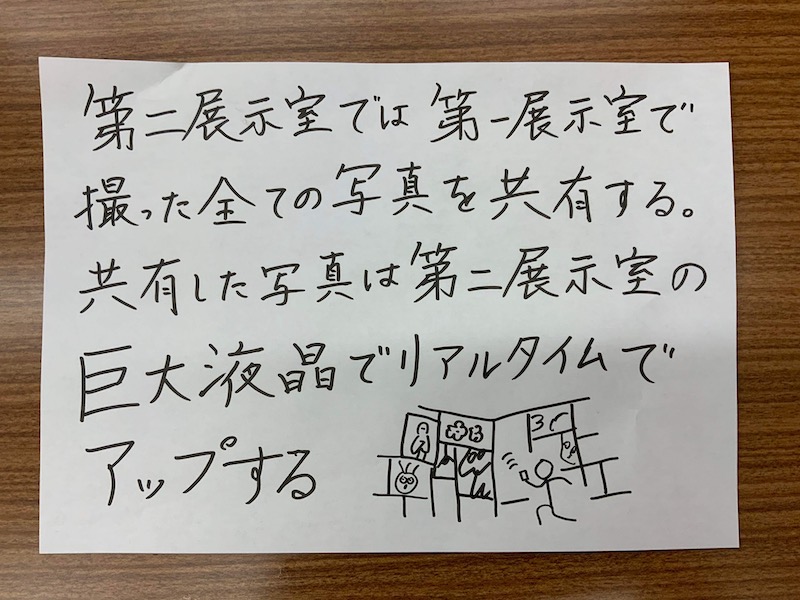 第二展示室では第一展示室で
撮った全ての写真を共有する。
共有した写真は第二展示室の
巨大液晶でリアルタイムで
アップする